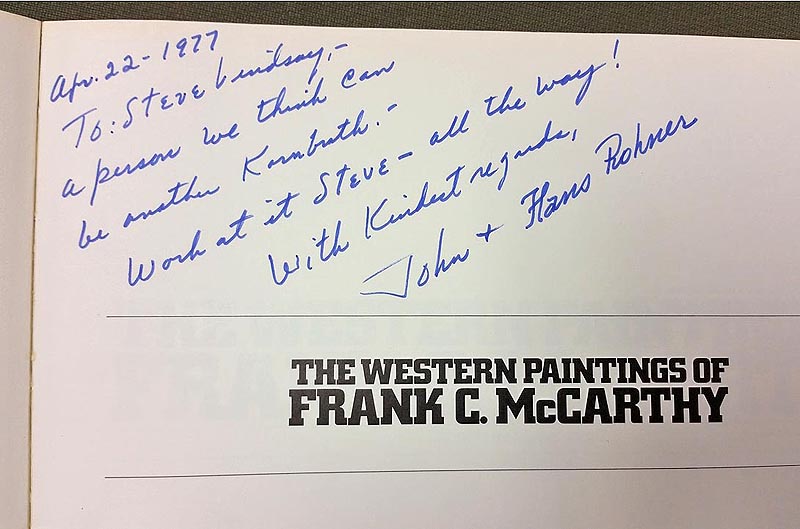 Apr. 22 - 1977
To: Steve Lindsay, -
a person we think can
be another Kornbrath. -
Work at it Steve - all the way!
With Kindest regards,
John + Hans Rohner
THE WESTERN PAINTINGS OF
FRANK C. McCARTHY